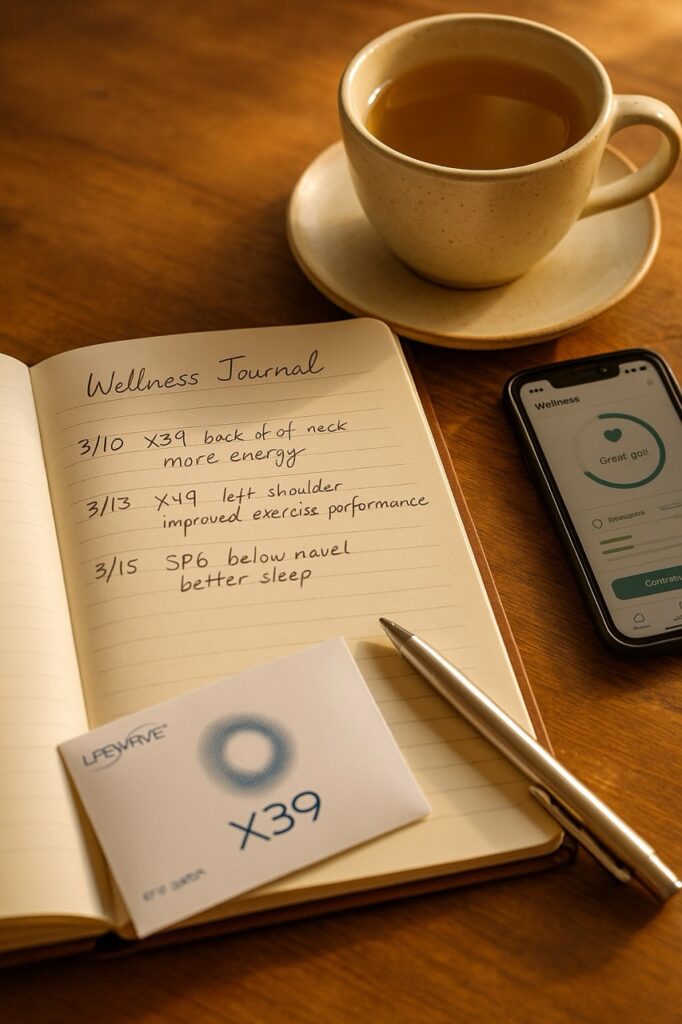 Wellness Journal
3/10 X39 back of of neck
more energy
3/13 X49 left shoulder
improved exerciss porformance
3/15 SP6 below navel
better sleep
LPEWRVE
X39
Wellness
Great go!!
Contrabu